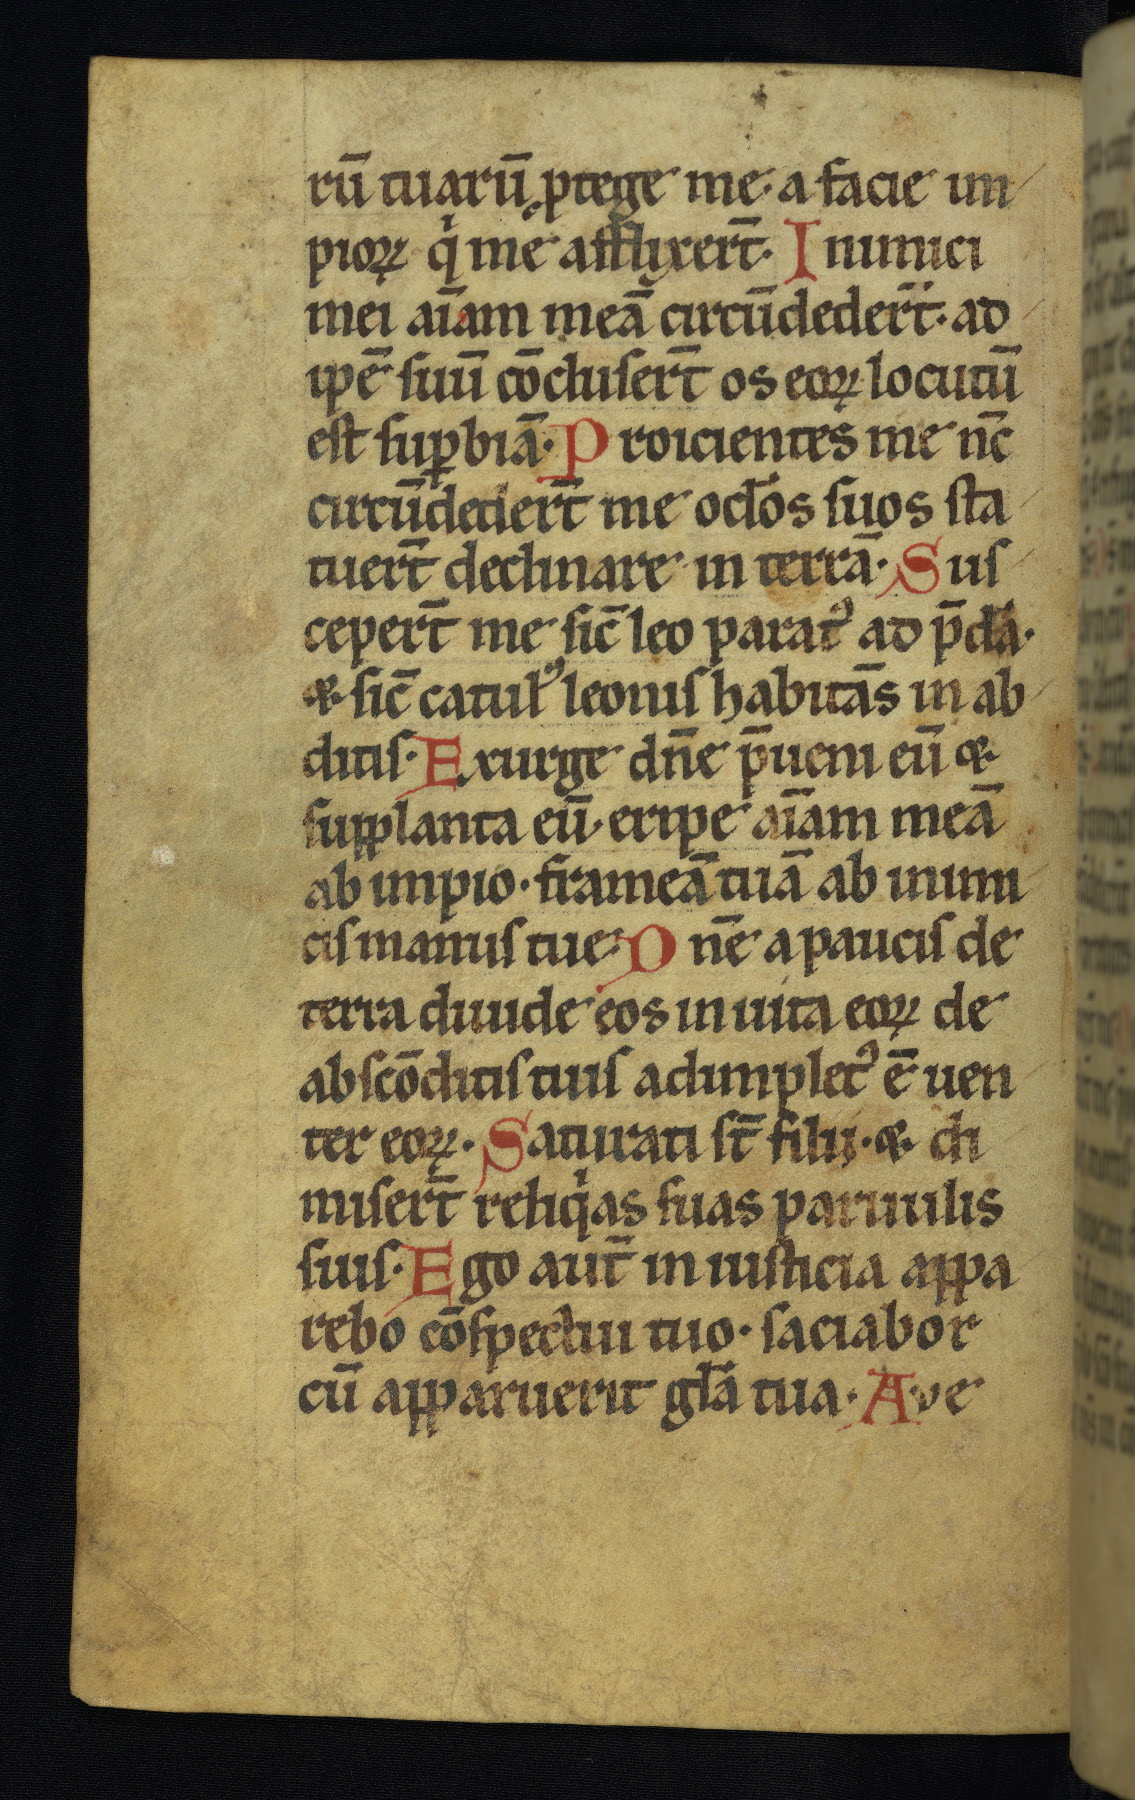 rū tuarū ꝓtege me· a facie im
pioꝝ qͥ me afflixert̄· Inimici
mei aīam meā circūdedert̄· ad
ipē suū cōclusert̄ os eoꝝ locutū
est suꝑbiā· Proicientes me nc̄
circūdedert̄ me oc̄los suos sta
tuert̄ declinare in terrā· Sus
cepert̄ me sic̄ leo paratꝰ ad p̄dā·
⁊ sic̄ catulꝰ leonis habitās in ab
ditis· Exurge dn̄e p̄ueni eū ⁊
supplanta eū· eripe aīam meā
ab impio· frameā tuā ab inimi
cis manus tue· Dn̄e a paucis de
terra diuide eos in uita eoꝝ de
abscōditis tuis adimpletꝰ ē uen
ter eoꝝ· Saturati st̄ filii· ⁊ di
misert̄ reliqͥas suas paruulis
suis· Ego aut̄ in iusticia appa
rebo cōspectui tuo· saciabor
cū apparuerit gl̄a tua· Ave